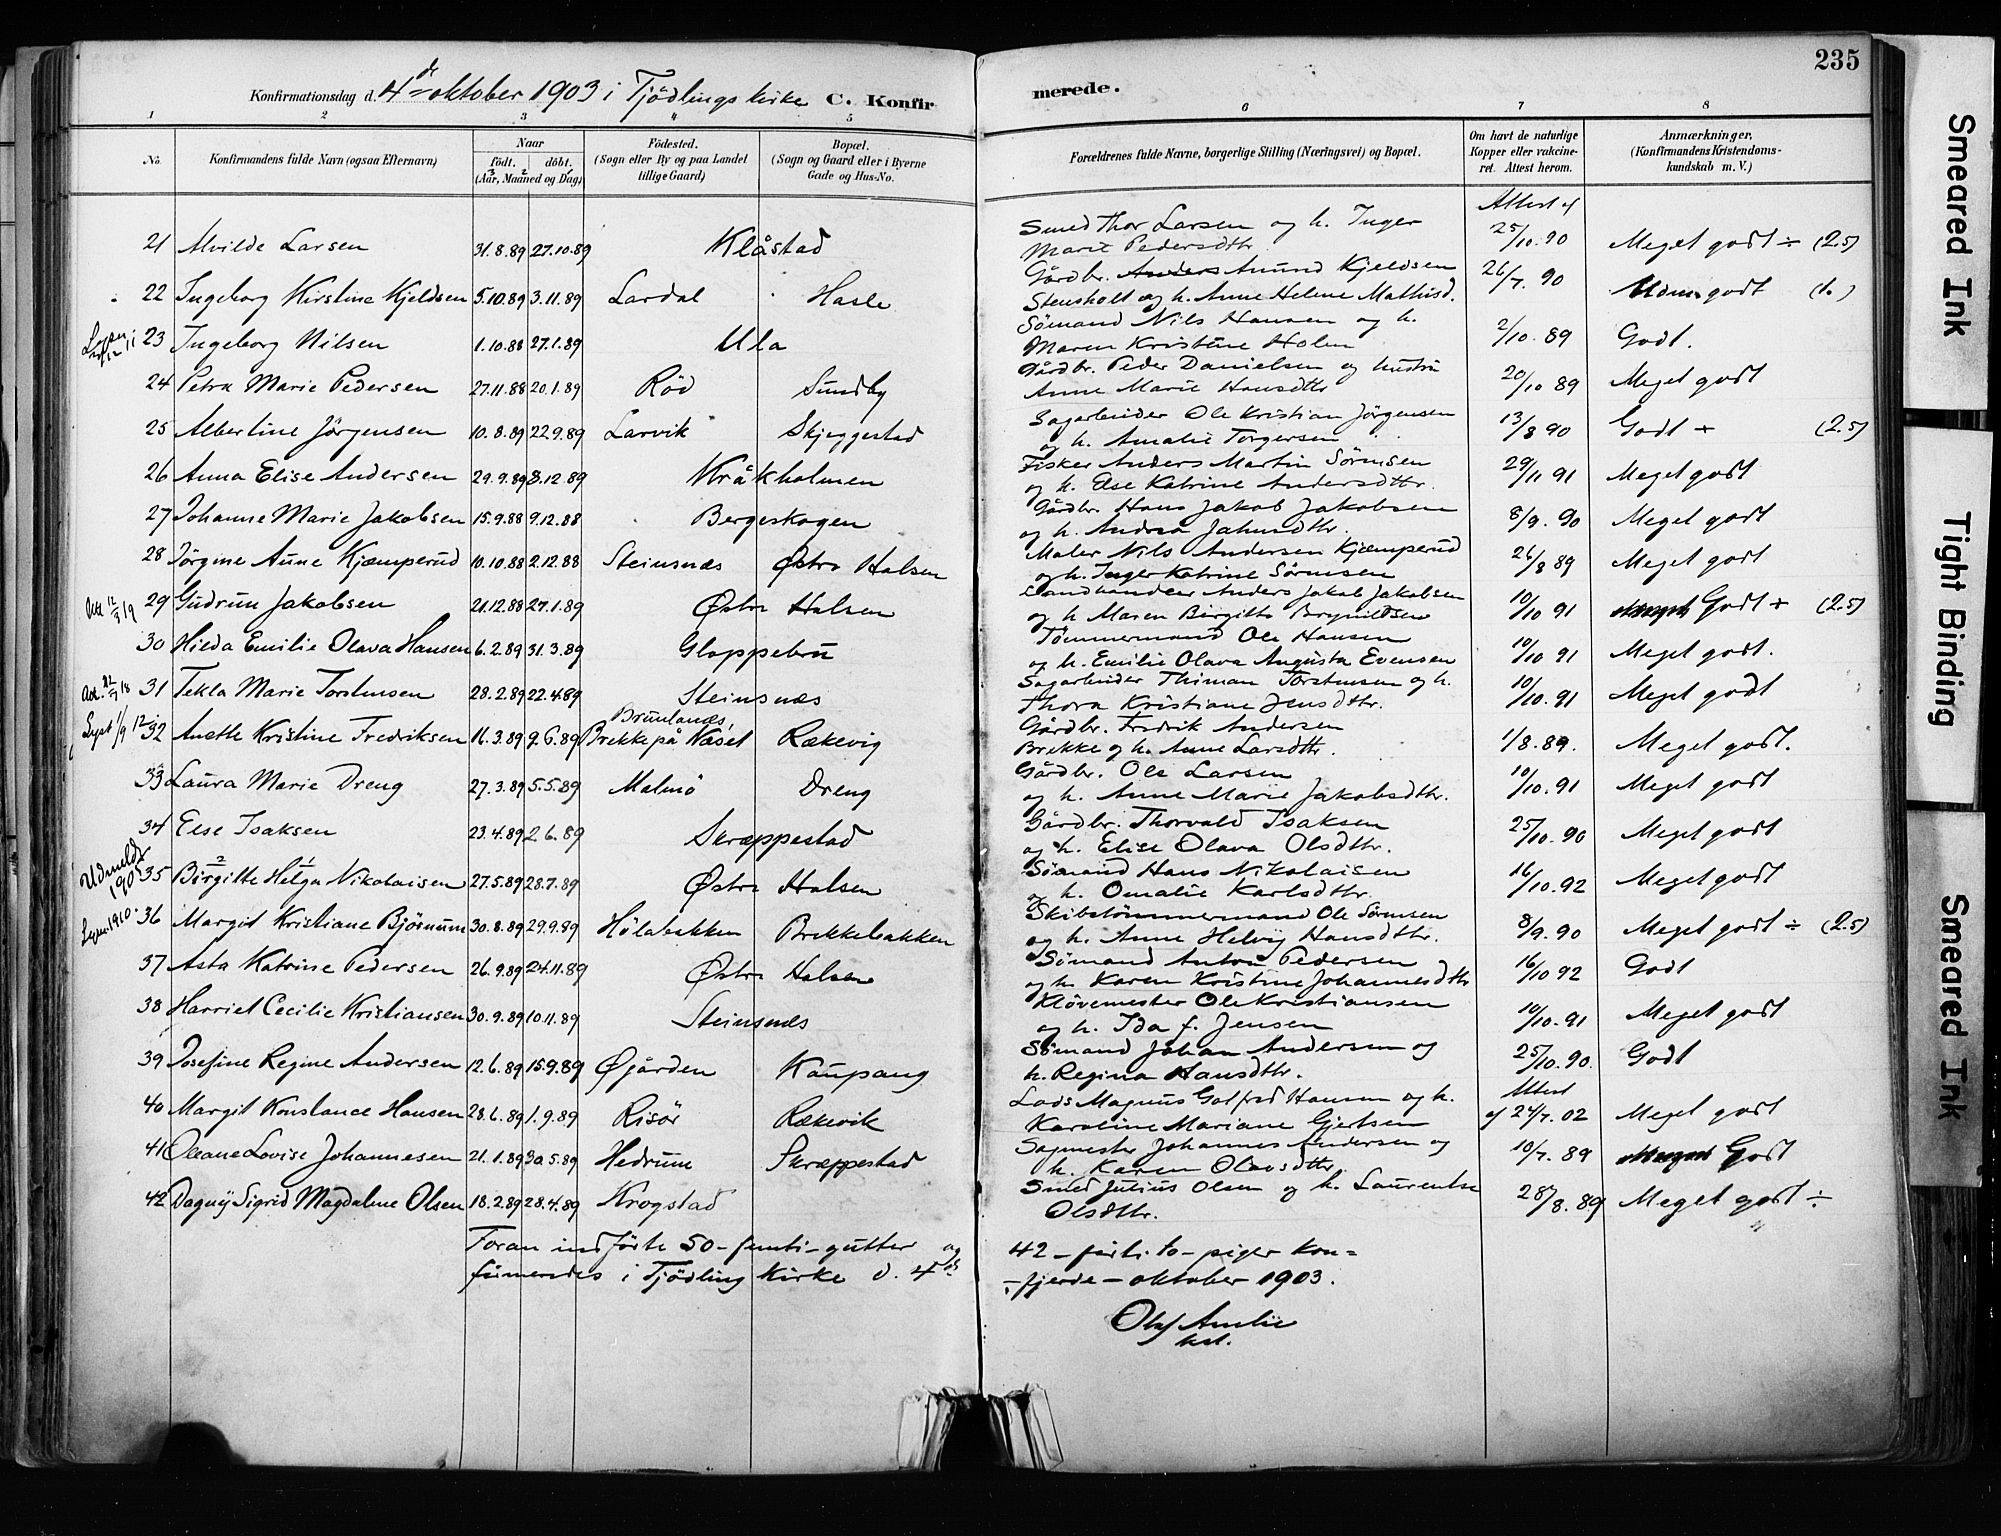 235
Konfirmationsdag d. 4de oktober 1903 i Tjødlings kirke C. Konfir merede.
1 2 3 4 5 6 7 8
No. Konfirmandens fulde Navn (ogsaa Efternavn) Naar født. døbt. (Aar, Maaned og Dag) Födested. (Sogn eller By og paa Landet tillige Gaard) Bopæl. (Sogn og Gaard eller i Byerne Gade og Hus-No. Forældrenes fulde Navne, borgerlige Stilling (Næringsvei) og Bopæl. Om havt de naturlige Kopper eller vakcineret. Attest herom. Anmærkninger, (Konfirmandens Kristendomskundskab m. V.)
Attest af
21 Alvilde Larsen 31.8.89 27.10.89 Klåstad Smed Thor Larsen og h. Inger Marie Pedersdtr. 25/10.90 Meget godt ÷ (2.5)
22 Ingeborg Kirstine Kjeldsen 5.10.89 3.11.89 Lardal Hasle Gårdbr. Anders Anund Kjeldsen Stensholt og h. Anne Helene Mathisd. 26/7.90 godt
23 Ingeborg Nilsen 1.10.88 27.1.89 Ula Sømand Nils Hansen og h. Maren Kristine Holm 2/10.89 Godt.
24 Petra Marie Pedersen 27.11.88 20.1.89 Röd Sundby Gårdbr. Peder Danielsen og hustru Anne Marie Hansdtr 20/10 89 Meget godt
25 Albertine Jørgensen 10.8.89 22.9.89 Larvik Skjeggestad Sagarbeider Ole Kristian Jørgensen og h. Amalie Torgersen 13/8 90 Godt + (2.5)
26 Anna Elise Andersen 29.9.89 8.12.89 Kråkholmen Fisker Anders Martin Sørensen og h. Else Katrine Andersdtr. 29/11 91 Meget godt
27 Johanne Marie Jakobsen 15.9.88 9.12.88 Bergeskogen Gårdbr. Hans Jakob Jakobsen og h. Andrea 8/9.90 Meget godt
28 Jørgine Anne Kjæmperud 10.10.88 2.12.88 Steinsnæs Østre Halsen Maler Nils Andersen Kjæmperud og h. Inger Katrine Sørensen 26/8 89 Meget godt
29 Gudrun Jakobsen 21.12.88 27.1.89 Østre Halsen Landhandler Anders Jakob Jakobsen og h Maren Birgitte 10/10 91 Meget Godt + (2.5)
30 Hilda Emilie Olava Hansen 6.2.89 31.3.89 Gloppebru Tømmermand Ole Hansen og h. Emilie Olava Augusta Evensen 10/10.91 Meget godt.
31 Tekla Marie Torstensen 28.2.89 22.4.89 Steinsnæs Sagarbeider Thiman Torstensen og h. Thora Kristiane Jensdtr. 10/10.91 Meget godt
32 Anette Kristine Fredriksen 16.3.89 9.6.89 Brunlanæs, Brekke på Næset Rækevig Gårdbr. Fredrik Andersen Brekke og h. Anne Larsdtr. 1/8.89. Meget godt.
33 Laura Marie Dreng 27.3.89 5.5.89 Malmö Dreng Gårdbr. Ole Larsen og h. Anne Marie Jakobsdtr. 10/10.91 Meget godt
34 Else Isaksen 23.4.89 2.6.89 Skræppestad Gårdbr. Thorvald Isaksen og h. Elise Olava Olsdtr. 25/10.90 Meget godt
Udmeldt 1905 35 Birgitte Helga Nikolaisen 27.5.89 28.7.89 Østre Halsen Sømand Hans Nikolaisen og h. Omalie Karlsdtr. 16/10.92 Meget godt
36 Margit Kristiane Bjørnum 30.8.89 29.9.89 Hölabakken Brekkebakken Skibstømmermand Ole Sørensen og h. Anne Helvig Hansdtr. 8/9.90 Meget godt ÷ (2.5)
37 Asta Katrine Pedersen 26.9.89 24.11.89 Østre Halsen Sømand Anton Pedersen og h. Karen Kristine Johannesdtr 16/10 92 Godt
38 Harriet Cecilie Kristiansen 30.9.89 10.11.89 Steinsnæs Kløvemester Ole Kristiansen og h. Ida f. Jensen 10/10.91 Meget godt
39 Josefine Regine Andersen 12.6.89 15.9.89 Øjården Kaupang Sømand Johan Andersen og h. Regina Hansdtr. 25/10.90 Godt
40 Margit Konstance Hansen 28.6.89 1.9.89 Risör Rækevik Lods Magnus Gotfred Hansen og h. Karoline Mariane Gjertsen Attest af 24/7.02 Meget godt
41 Oleane Lovise Johannesen 21.1.89 30.5.89 Hedrum Skræppestad Sagmester Johannes Andersen og h. Karen Olavsdtr. 10/7.89 Meget Godt
42 Dagny Sigrid Magdalene Olsen 18.2.89 28.4.89 Krogstad Smed Julius Olsen og h. Laurentse Olsdtr. 28/8.89 Meget godt ÷
Foran indførte 50 – femti – gutter og 42 – førti-to – piger kon=
firmeredes i Tjødling kirke d. 4de – fjerde – oktober 1903.
Olaf Amlie
kst.
Smeared Ink
Tight Binding
Smeared Ink